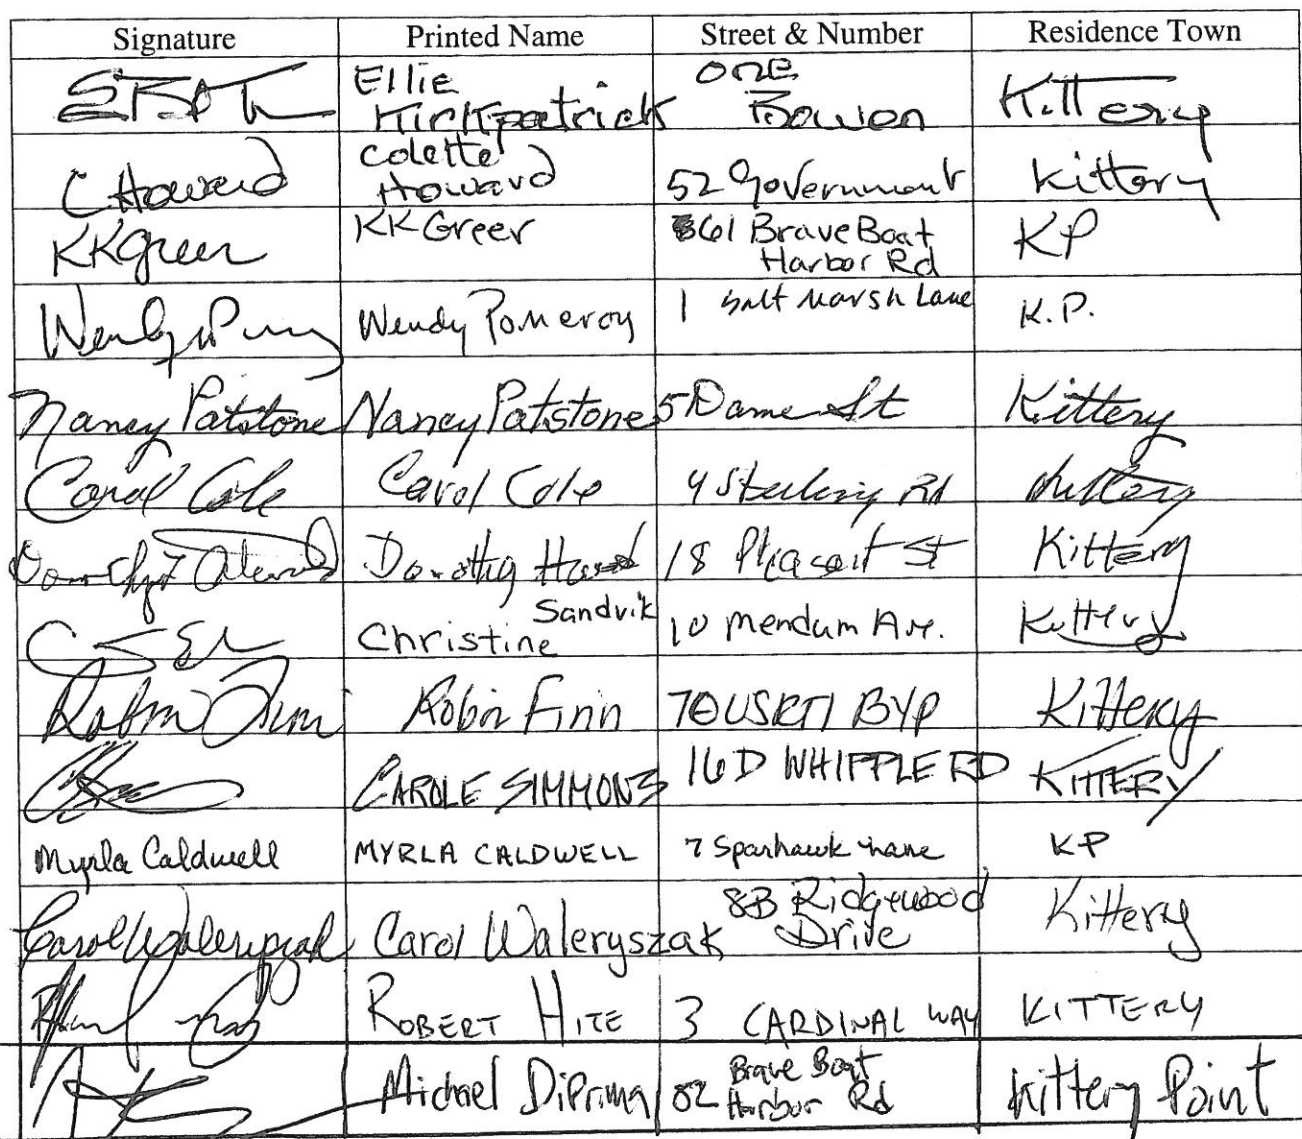 Signature Printed Name Street & Number Residence Town
Ellie one
Kirkpatrick Bowen Kittery
Colette
C Howard Howard 52 Government Kittery
KKGreer KK Greer 61 Brave Boat KP
Harbor Rd
Wendy Pomeroy 1 Salt Marsh Lane K.P.
Nancy Patstone Nancy Patstone 5 Dame St Kittery
Carol Cole Carol Cole 4 Sterling Rd Kittery
Dorothy 18 Pleasant St Kittery
Sandvik
Christine 10 Mendum Ave. Kittery
Robin Finn Robin Finn 70 US RT 1 BYP Kittery
CAROLE SIMMONS 16D WHIPPLE RD KITTERY
Myrla Caldwell MYRLA CALDWELL 7 Sparhawk Lane KP
8B Ridgewood
Carol Waleryszak Carol Waleryszak Drive Kittery
ROBERT HITE 3 CARDINAL WAY KITTERY
Brave Boat
Michael DiPrima 82 Harbor Rd Kittery Point